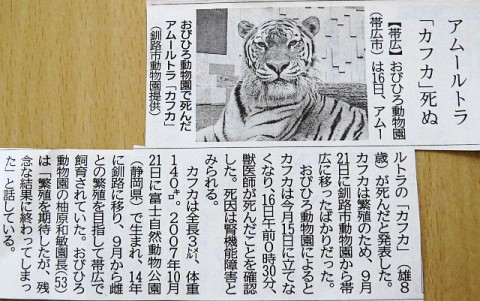 アムールトラ
「カフカ」死ぬ
【帯広】おびひろ動物園
（帯広市）は16日、アムー
おびひろ動物園で死んだ
アムールトラ「カフカ」
（釧路市動物園提供）
ルトラの「カフカ」（雄８
歳）が死んだと発表した。
カフカは繁殖のため、９月
21日に釧路市動物園から帯
広に移ったばかりだった。
おびひろ動物園によると
カフカは今月15日に立てな
くなり、16日午前０時30分、
獣医師が死んだことを確認
した。死因は腎機能障害と
みられる。
カフカは全長３㍍、体重
140㌔。2007年10月
21日に富士自然動物公園
（静岡県）で生まれ、14年
に釧路に移り、９月から雌
との繁殖を目指して帯広で
飼育されていた。おびひろ
動物園の柚原和敏園長（53）
は「繁殖を期待したが、残
念な結果に終わってしまっ
た」と話している。